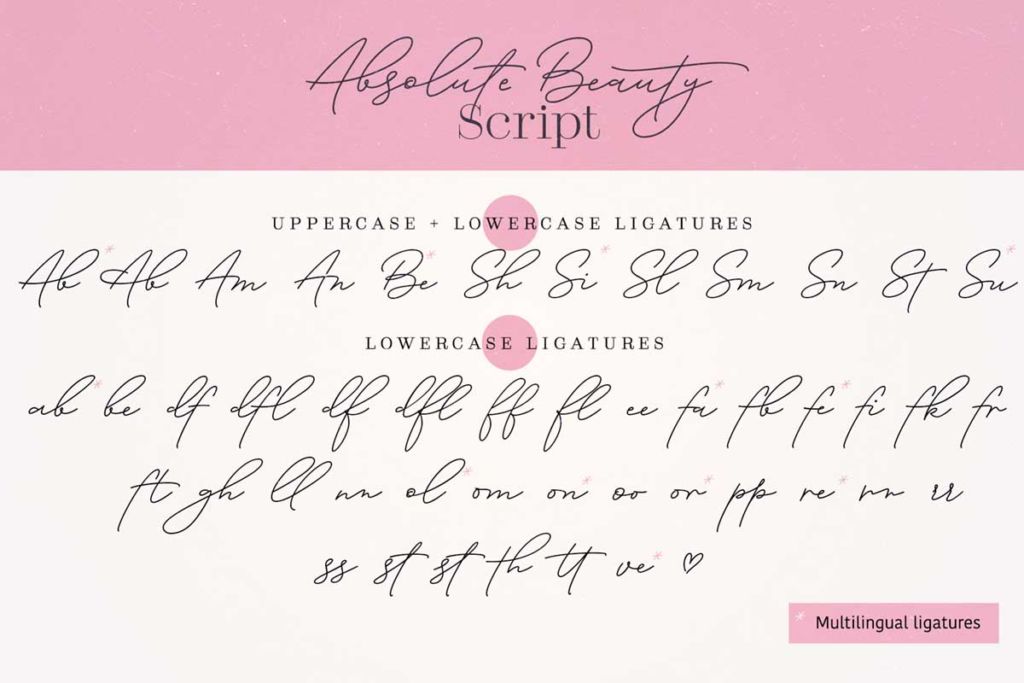 Absolute Beauty
Script
UPPERCASE + LOWERCASE LIGATURES
Ab* Ab Am An Be* Sh Si* Sl Sm Sn St Su*
LOWERCASE LIGATURES
ab* be df dfl df dfl ff fl ee fa* fb fe* fi fk fr
ft gh ll nn ol* om on* oo or* pp re* rn rr
ss st st th tt ve* ♡
* Multilingual ligatures